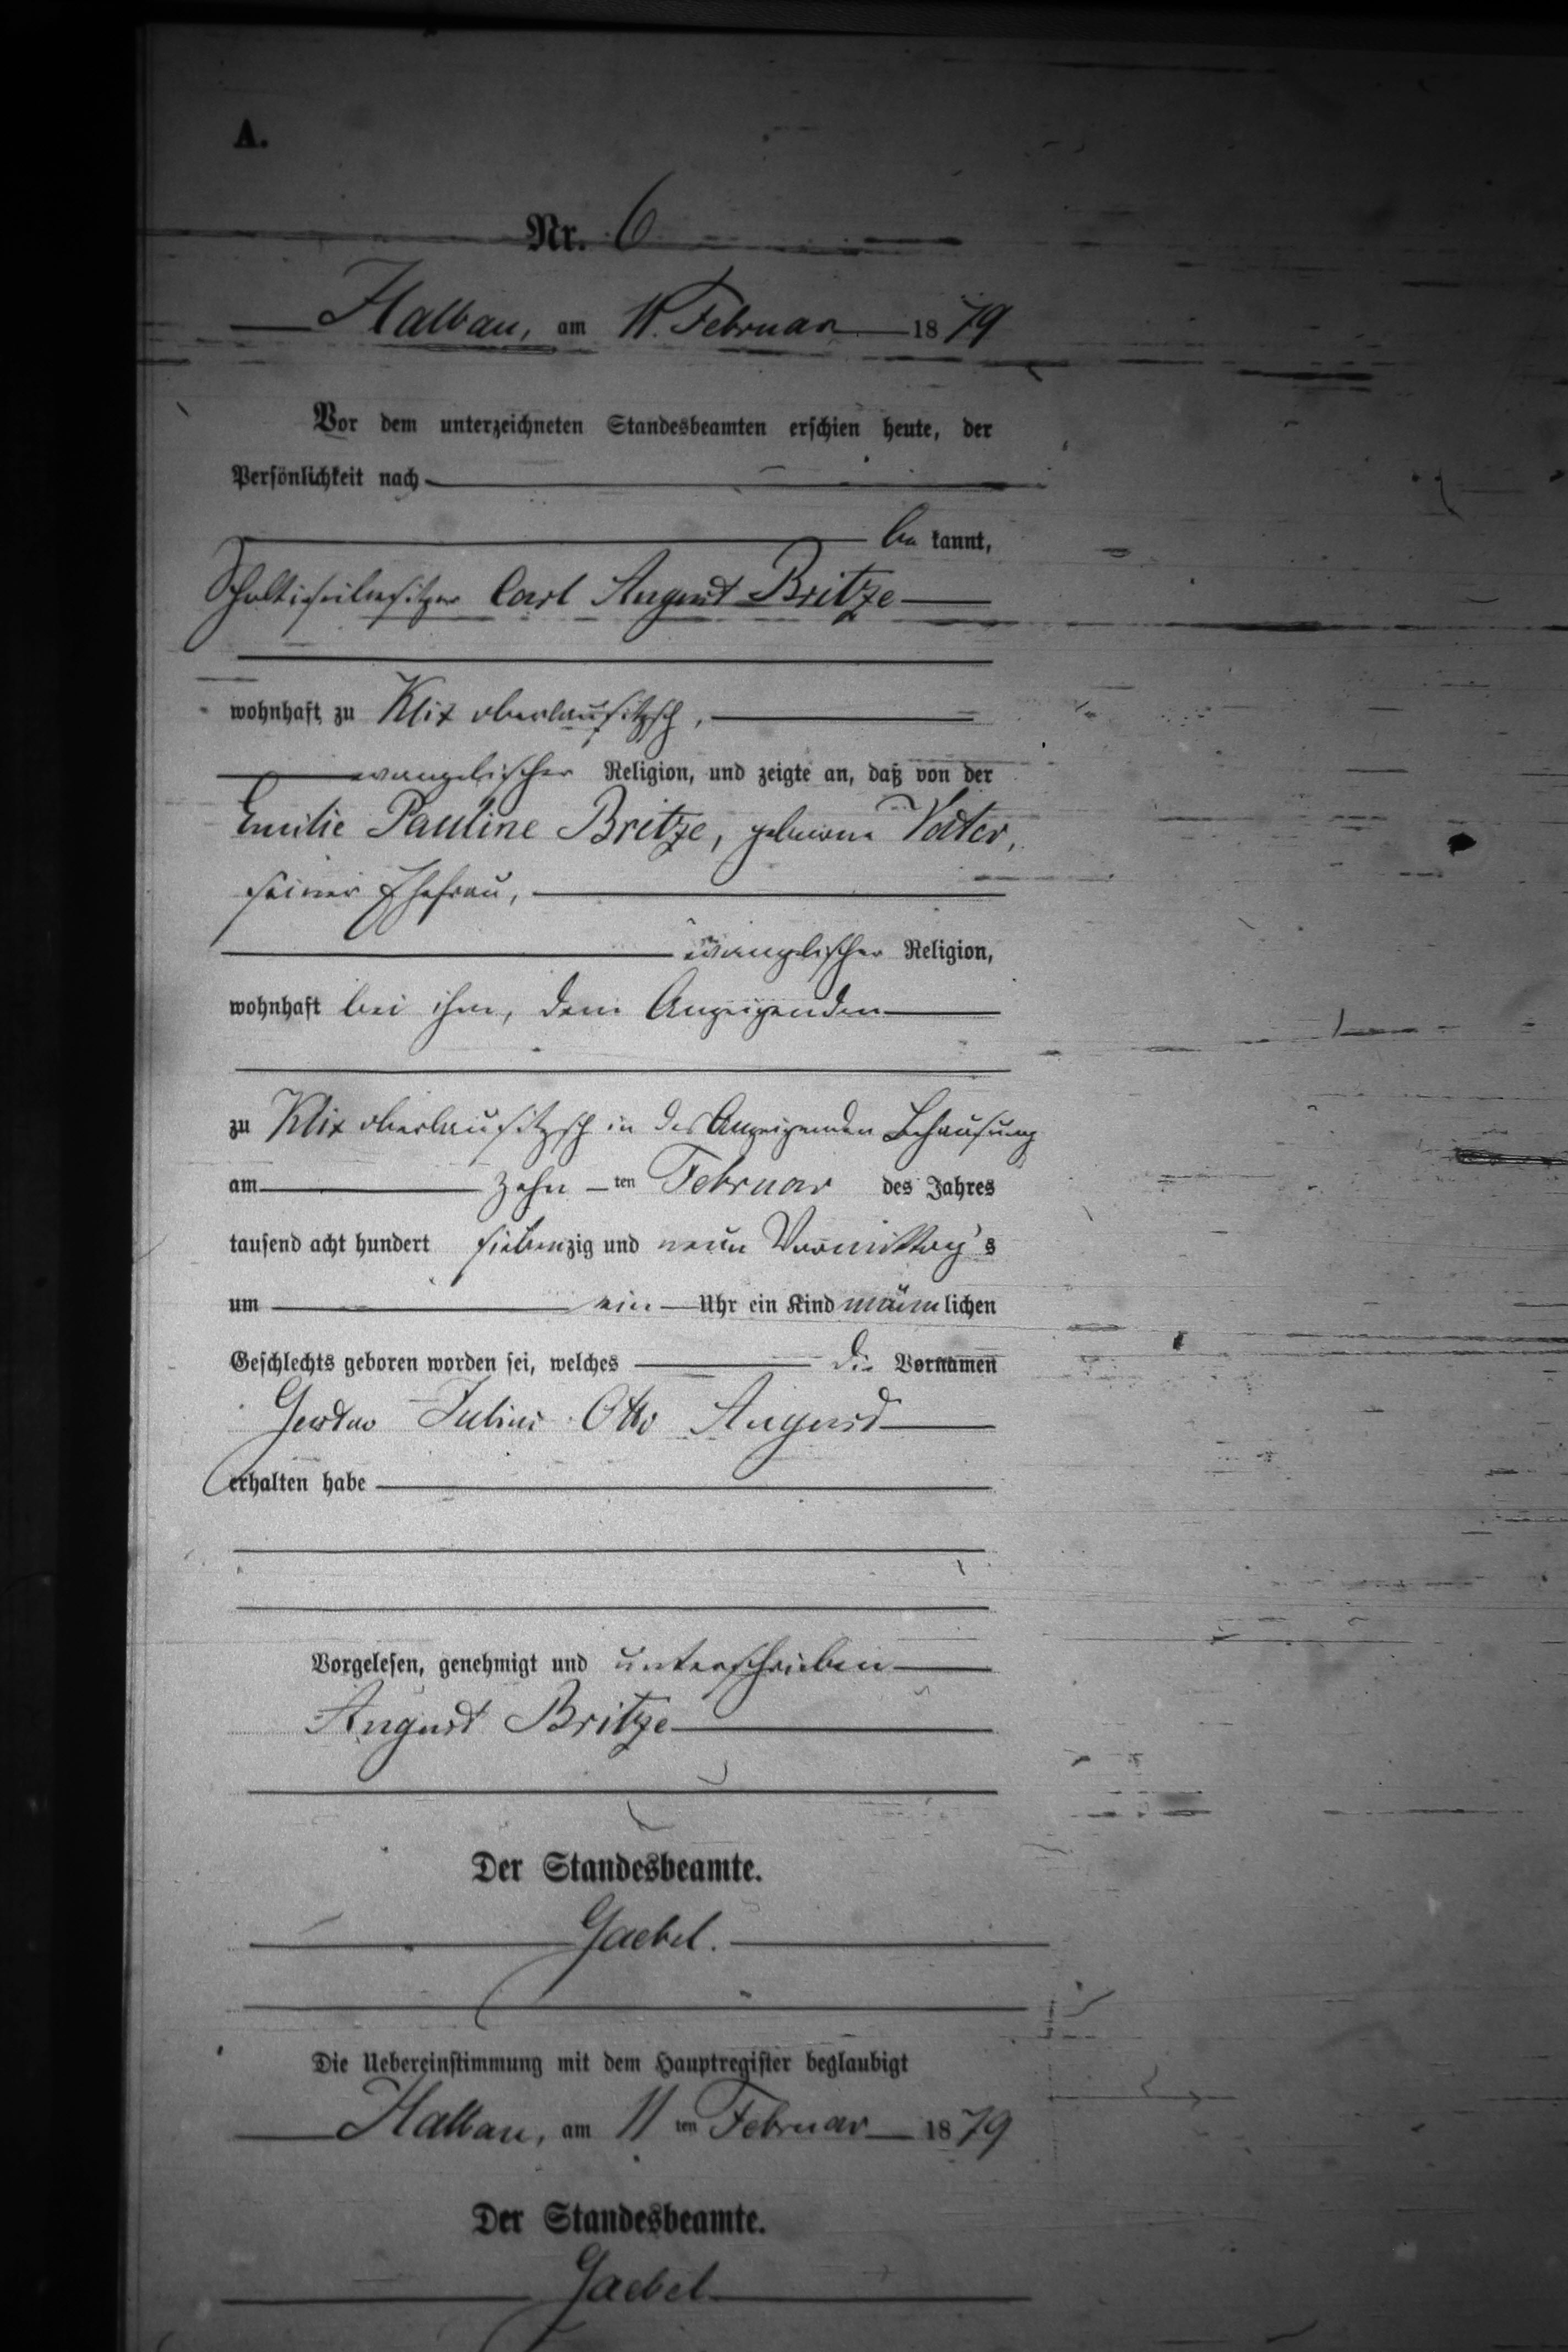 A.
Nr. 6
Halbau, am 11. Februar 1879
Vor dem unterzeichneten Standesbeamten erschien heute, der
Persönlichkeit nach
be kannt,
Scholtiseibesitzer Carl August Britze
wohnhaft zu Klix oberlausitzsch,
evangelischer Religion, und zeigte an, daß von der
Emilie Pauline Britze, geborene Vater,
seiner Ehefrau,
evangelischer Religion,
wohnhaft bei ihm, dem Anzeigenden
zu Klix oberlausitzsch in des Anzeigenden Behausung
am zehn ten Februar des Jahres
tausend acht hundert siebenzig und neun Vormittag's
um ein Uhr ein Kind männlichen
Geschlechts geboren worden sei, welches die Vornamen
Gustav Julius Otto August
erhalten habe
Vorgelesen, genehmigt und unterschrieben
August Britze
Der Standesbeamte.
Gaebel.
Die Uebereinstimmung mit dem Hauptregister beglaubigt
Halbau, am 11 ten Februar 1879
Der Standesbeamte.
Gaebel